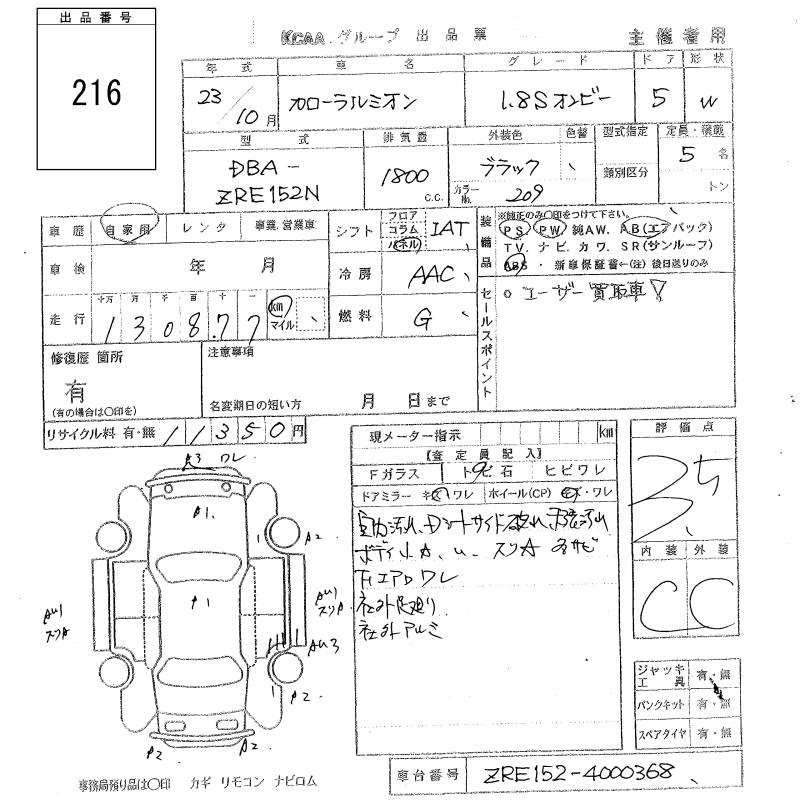 出品番号
216
KCAA.グループ 出品票
主催者用
年式 車名 グレード ドア 形状
23/10月 カローラルミオン 1.8Sオンビー 5 W
型式 排気量 外装色 色替 型式指定 定員・積載
DBA-
ZRE152N
1800 C.C.
ブラック
カラーNo. 209
類別区分
5名
トン
車歴 自家用 レンタ 事業.営業車
シフト フロア コラム パネル IAT
装備品
※純正のみ〇印をつけて下さい。
PS PW 純AW. AB(エアバック)
TV. ナビ. カワ. SR(サンルーフ)
ABS ・ 新車保証書←(注) 後日送りのみ
車検 年 月
冷房 AAC
走行 十万 万 千 百 十 一
130877 km マイル
燃料 G
セールスポイント
○ ユーザー買取車!
修復歴 箇所
有
(有の場合は〇印を)
注意事項
名変期日の短い方 月 日まで
リサイクル料 有・無 11350円
現メーター指示 km
【査定員記入】
Fガラス トビ石 ヒビワレ
ドアミラー キズ ワレ ホイール(CP) キズ・ワレ
ボディ小A、U、スリA 各サビ
下エアロワレ
社外アルミ
評価点
3.5
内装 外装
C C
ジャッキ工具 有・無
パンクキット 有・無
スペアタイヤ 有・無
A3 ワレ
A1
A2
A1
AU1
スリA
AU1
スリA
AU3
A2
A2
A2
事務局預り品は〇印 カギ リモコン ナビロム
車台番号 ZRE152-4000368